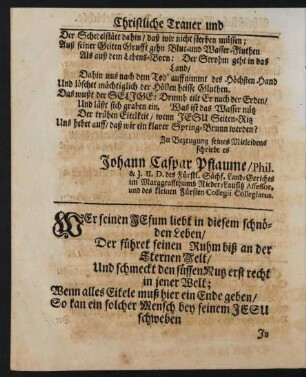 Christliche Trauer und
Der Schedelstätt dahin/ daß wir nicht sterben müssen;
Auß seiner Seiten Grufft gehn Blut-und Wasser-Fluthen
Als auß dem Lebens-Born: Der Strohm geht in das
Land/
Dahin uns nach dem Tod' auffnimmt des Höchsten Hand
Und löschet mächtiglich der Höllen heisse Gluthen.
Das wust der SELIGE: Drumb eilt Er nach der Erden/
Und läst sich graben ein. Was ist das Wasser nütz
Der trüben Eitelkeit/ wenn JESU Seiten-Ritz
Uns hebet auff/ daß wir ein klarer Spring-Brunn werden?
Zu Bezeugung seines Mitleidens
schriebe es
Johann Caspar Pflaume/ Phil.
& J. U. D. des Fürstl. Sächs. Land-Gerichts
im Marggraffthumb Nieder-Laußitz Assessor,
und des kleinen Fürsten Collegii Collegiatus.
WEr seinen JEsum liebt in diesem schnö-
den Leben/
Der führet seinen Ruhm biß an der
Sternen Zelt/
Und schmeckt den süssen Nutz erst recht
in jener Welt;
Wenn alles Eitele muß hier ein Ende geben/
So kan ein solcher Mensch bey seinem JESU
schweben
In